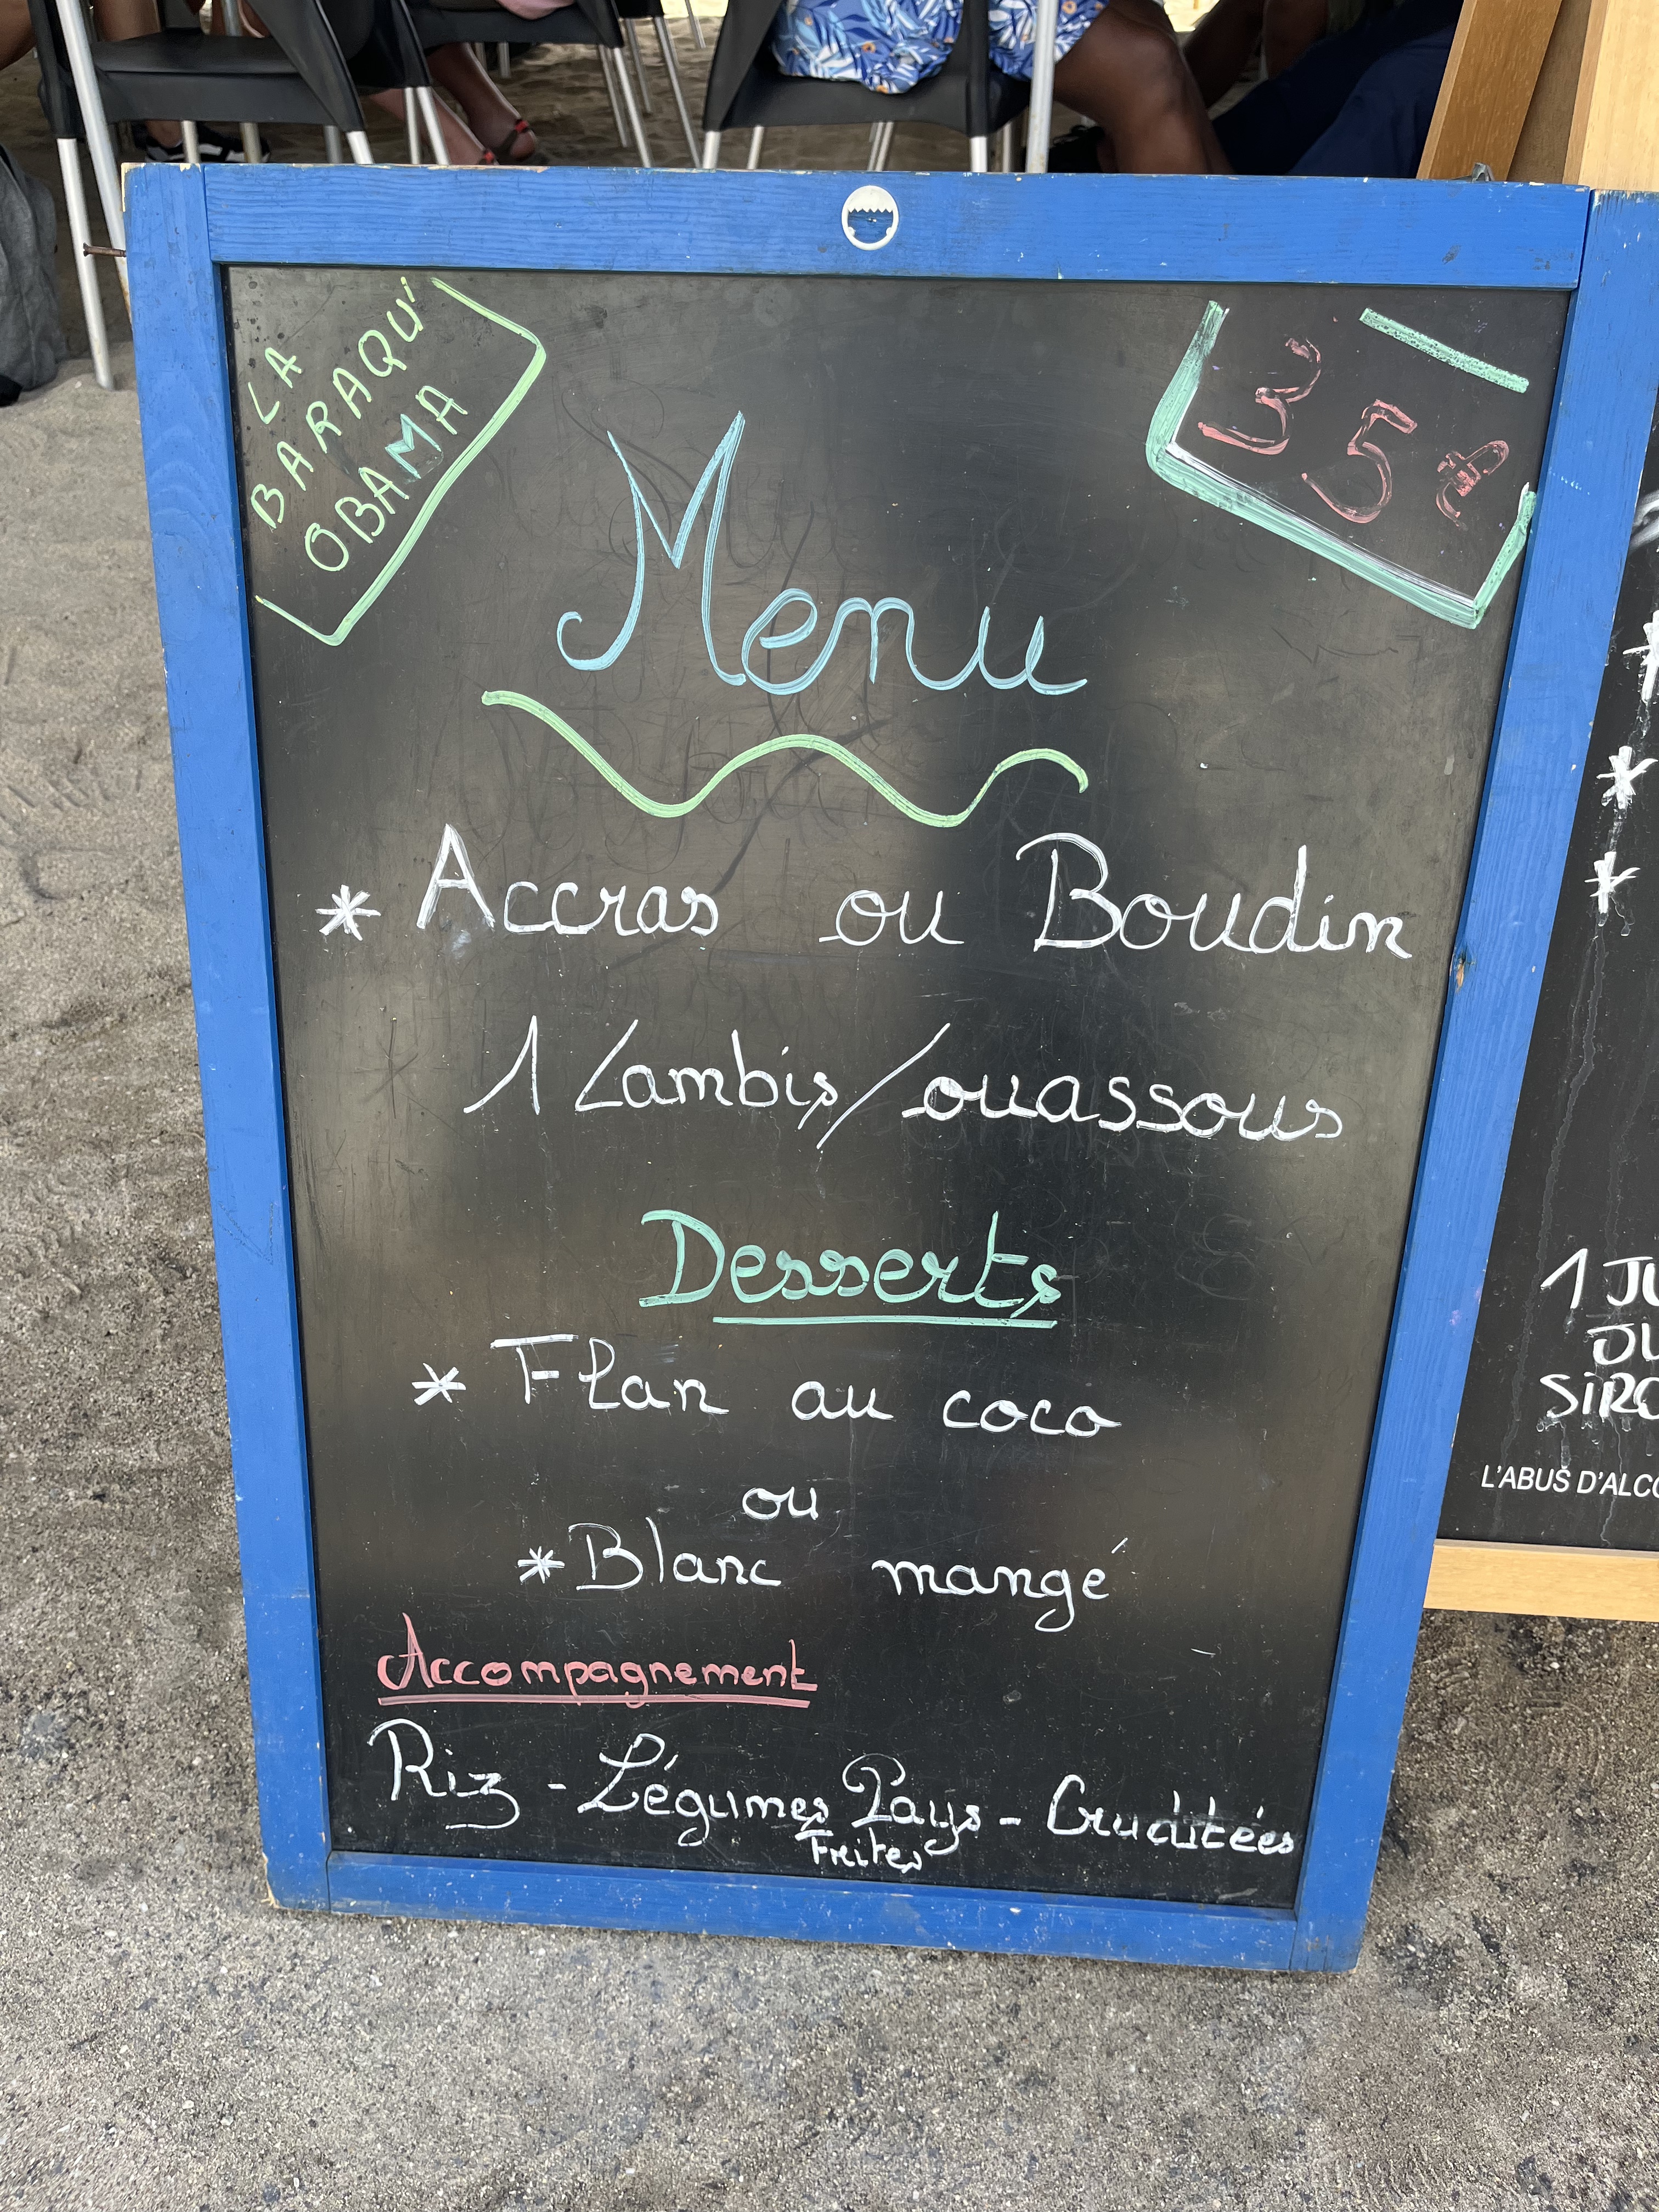 LA
BARAQU'
OBAMA
35€
Menu
* Accras ou Boudin
1 Lambis/ouassous
Desserts
* Flan au coco
ou
* Blanc mangé
Accompagnement
Riz - Légumes Pays - Crudités
Frites
*
*
*
1 JU
JU
SIRO
L'ABUS D'ALCO